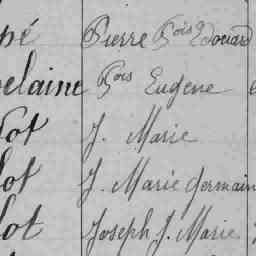 pé Pierre Fois Edouard
elaine Fois Eugene
lot J. Marie
lot J. Marie Germain
lot Joseph J. Marie